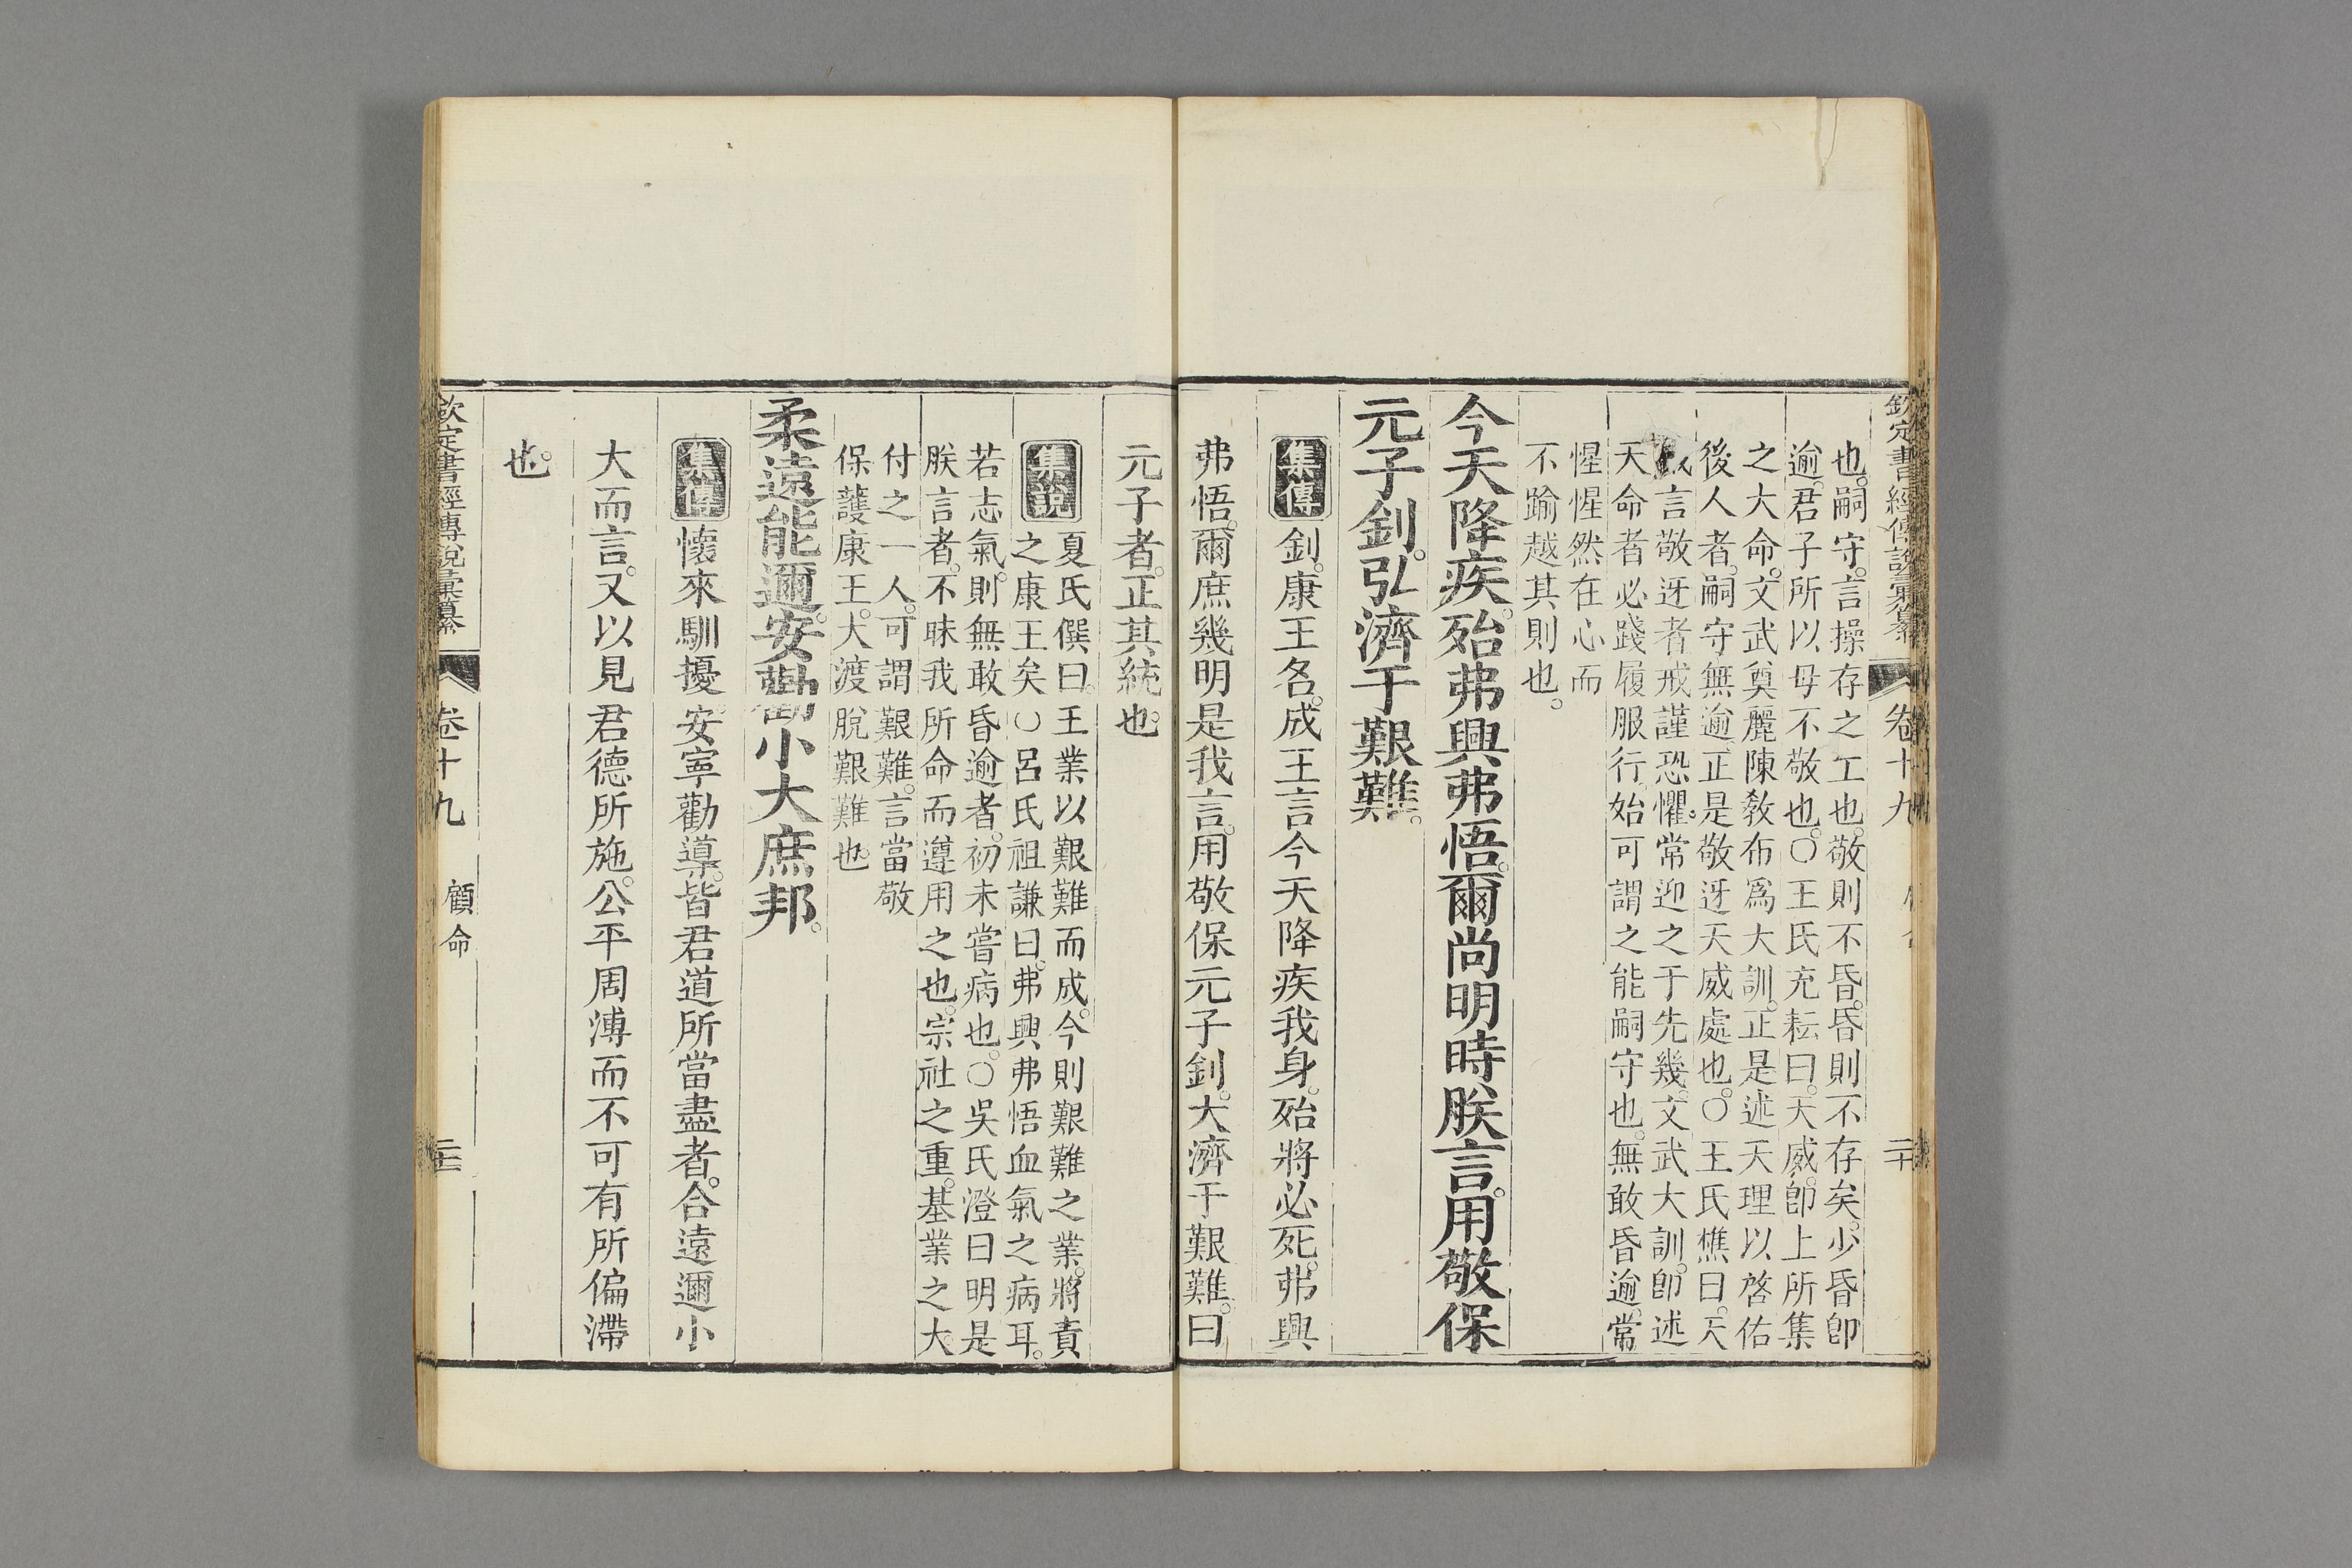 欽定書經傳說彙纂 卷十九 二十
也。嗣守。言操存之工也。敬則不昏。昏則不存矣。少昏卽
逾。君子所以毋不敬也。○王氏充耘曰。天威。卽上所集
之大命。文武奠麗陳敎布爲大訓。正是述天理以啓佑
後人者。嗣守無逾。正是敬迓天威處也。○王氏樵曰。天
威言敬迓者。戒謹恐懼。常迎之于先幾。文武大訓。卽述
天命者。必踐履服行。始可謂之能嗣守也。無敢昏逾。常
惺惺然在心而
不踰越其則也。
今天降疾。殆弗興弗悟。爾尚明時朕言。用敬保
元子釗。弘濟于艱難。
集傳 釗。康王名。成王言今天降疾我身。殆將必死。弗興
弗悟。爾庶幾明是我言。用敬保元子釗。大濟于艱難。曰
元子者。正其統也。
集說 夏氏僎曰。王業以艱難而成。今則艱難之業。將責
之康王矣○呂氏祖謙曰。弗興弗悟。血氣之病耳。
若志氣。則無敢昏逾者。初未嘗病也。○吳氏澄曰。明是
朕言者。不昧我所命而遵用之也。宗社之重。基業之大
付之一人。可謂艱難。言當敬
保護康王。大渡脫艱難也。
柔遠能邇。安勸小大庶邦。
集傳 懷來馴擾。安寧勸導。皆君道所當盡者。合遠邇小
大而言。又以見君德所施。公平周溥。而不可有所偏滯
也。
欽定書經傳說彙纂 卷十九 顧命 二十一